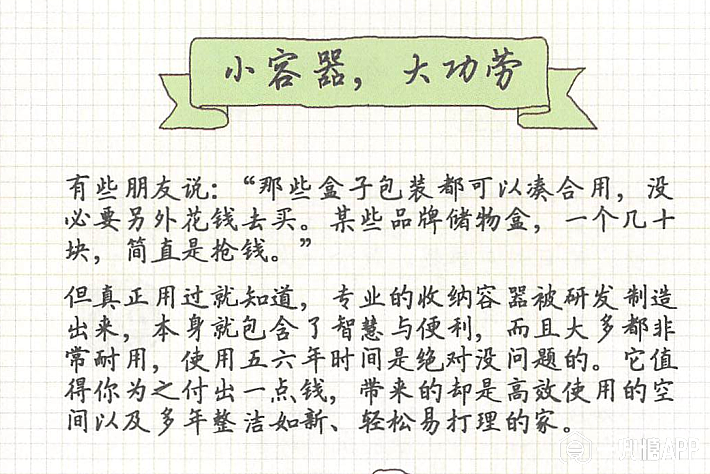 小容器，大功劳
有些朋友说：“那些盒子包装都可以凑合用，没
必要另外花钱去买。某些品牌储物盒，一个几十
块，简直是抢钱。”
但真正用过就知道，专业的收纳容器被研发制造
出来，本身就包含了智慧与便利，而且大多都非
常耐用，使用五六年时间是绝对没问题的。它值
得你为之付出一点钱，带来的却是高效使用的空
间以及多年整洁如新、轻松易打理的家。
APP